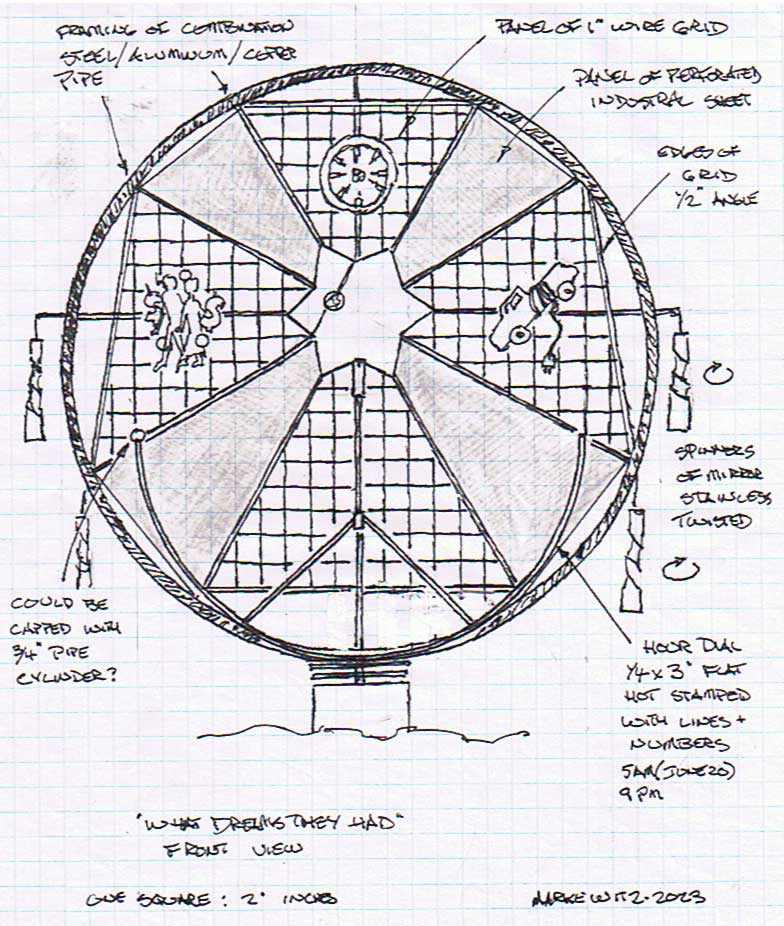 FRAMING OF COMBINATION
STEEL/ALUMINUM/COPPER
PIPE
PANEL OF 1" WIRE GRID
PANEL OF PERFORATED
INDUSTRAL SHEET
EDGES OF
GRID
1/2" ANGLE
SPINNERS
OF MIRROR
STAINLESS
TWISTED
COULD BE
CAPPED WITH
3/4" PIPE
CYLINDER?
HOUR DIAL
1/4 x 3" FLAT
HOT STAMPED
WITH LINES +
NUMBERS
5AM (JUNE 20)
9 PM
"WHAT DREAMS THEY HAD"
FRONT VIEW
ONE SQUARE : 2" INCHES
MARKEWITZ-2023